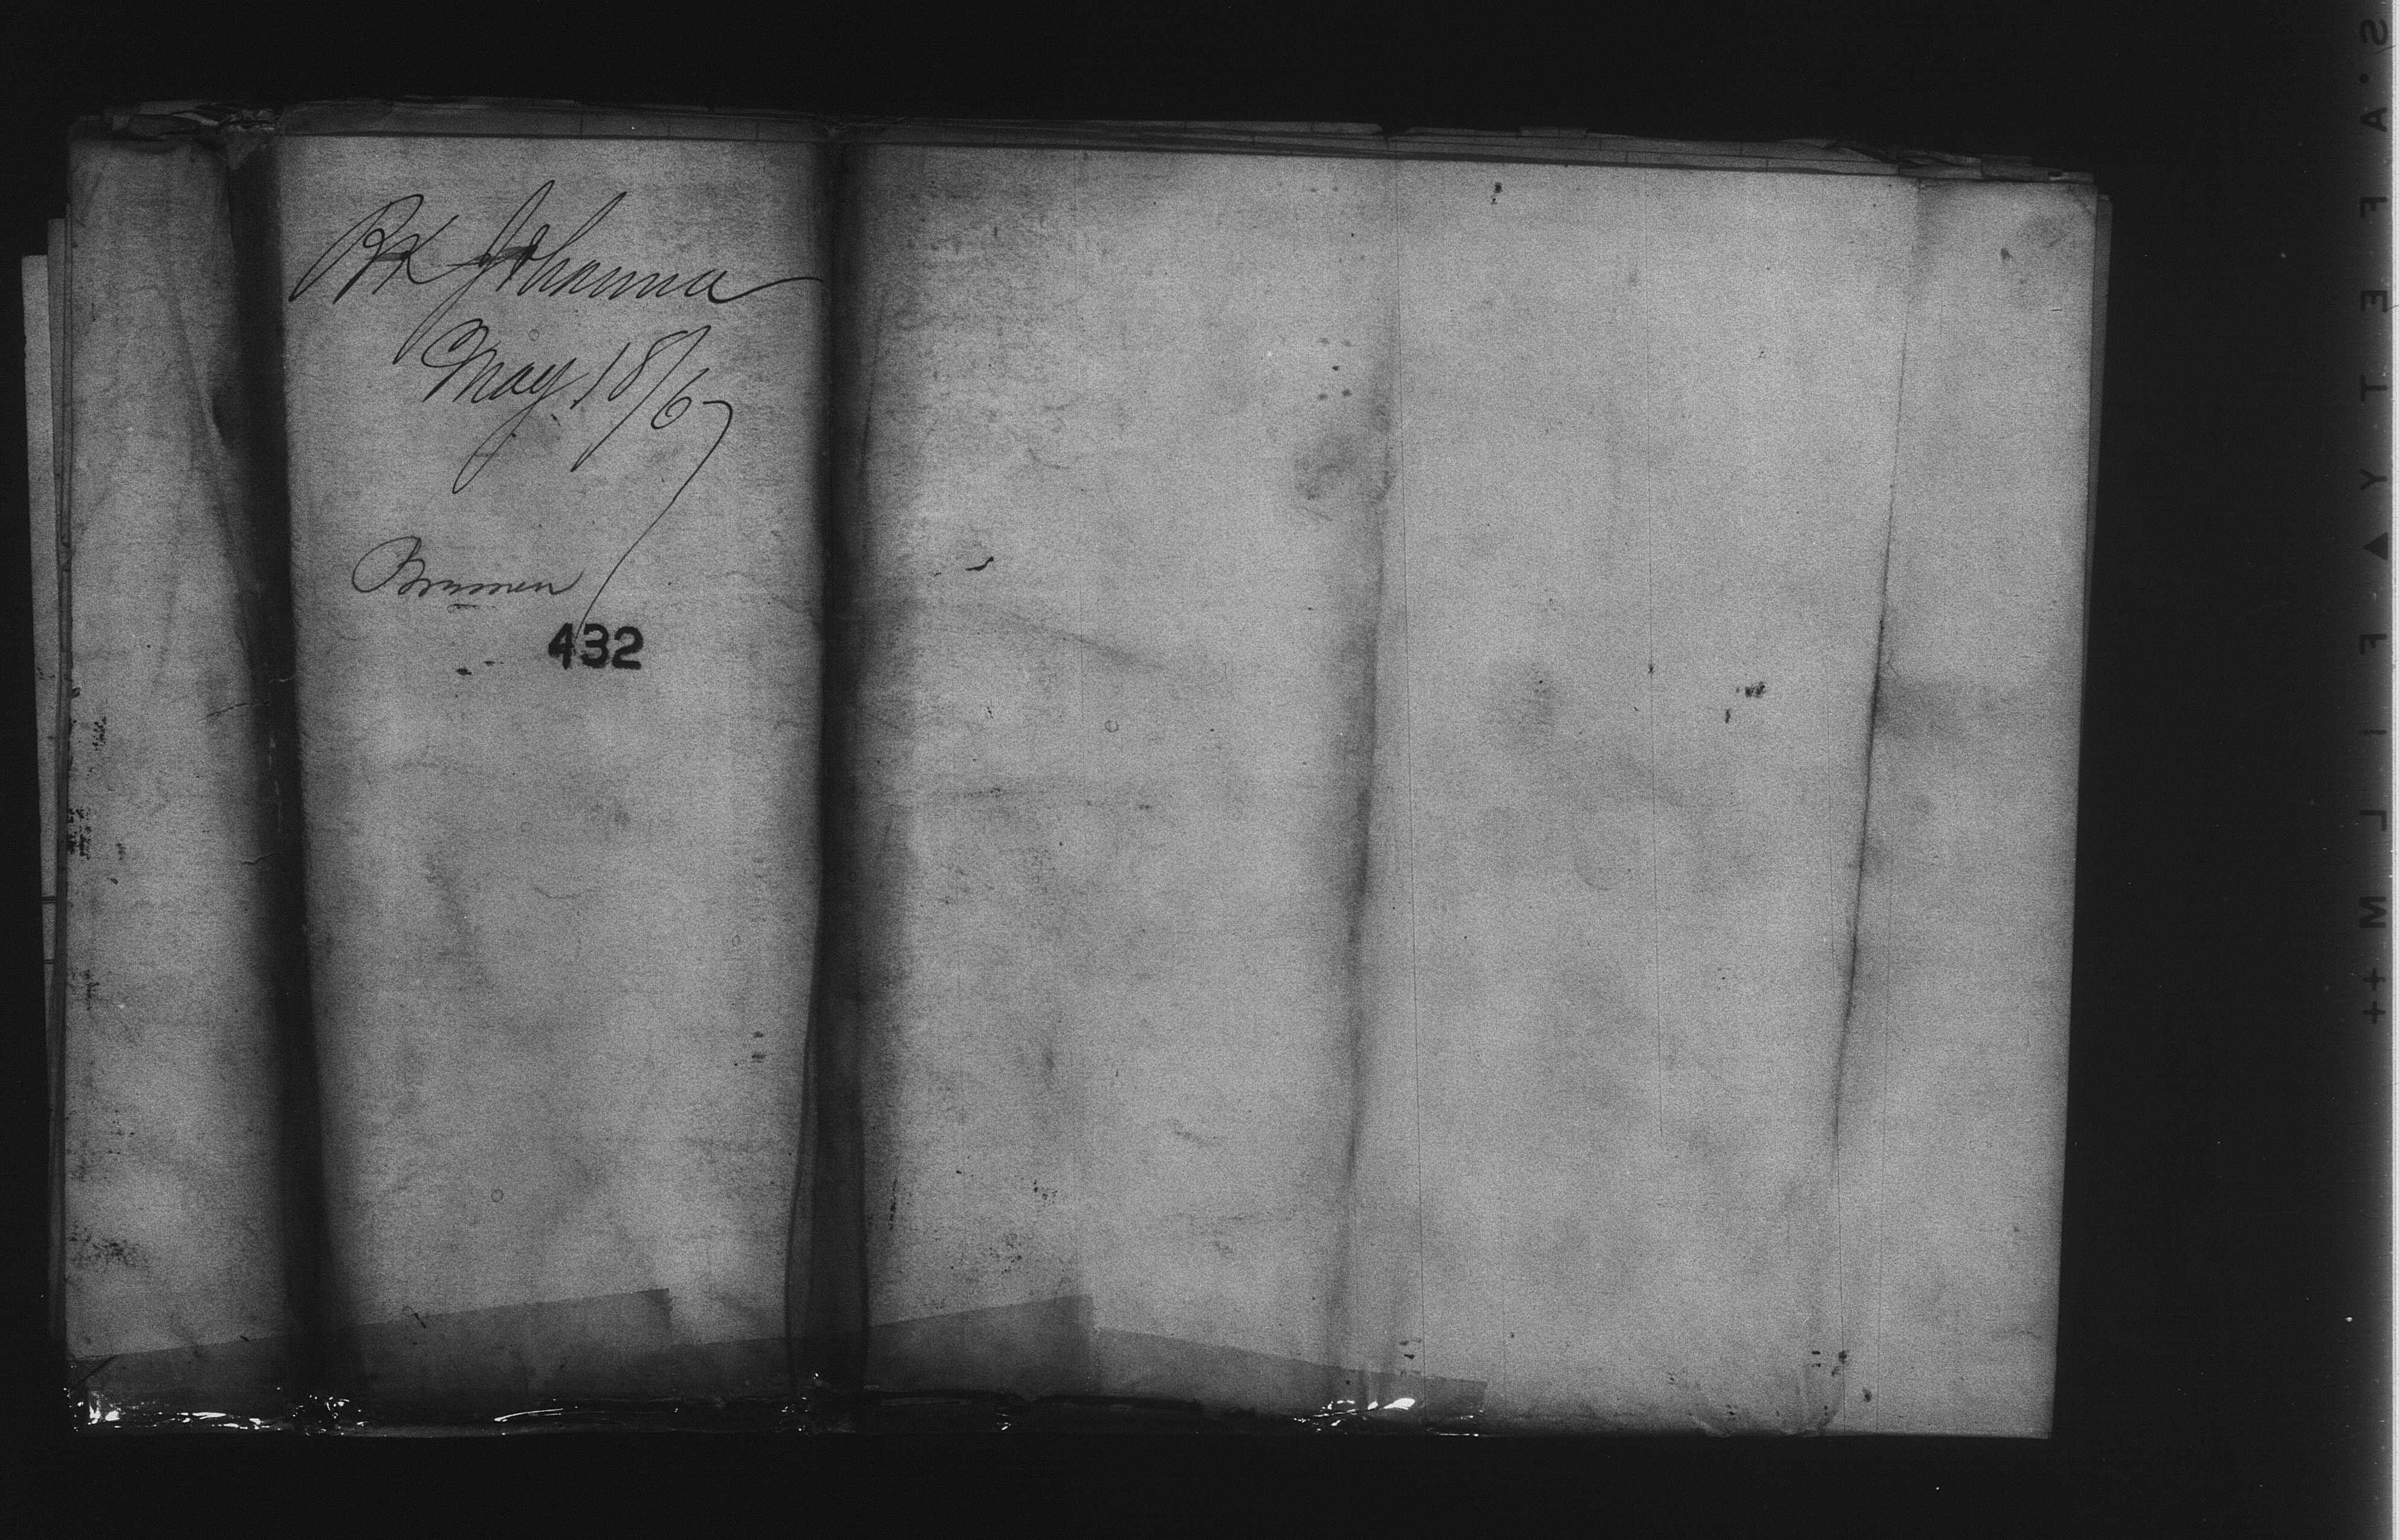 Bk Johanna
May 18/67
Bremen
432
SAFETY▲FILM ++